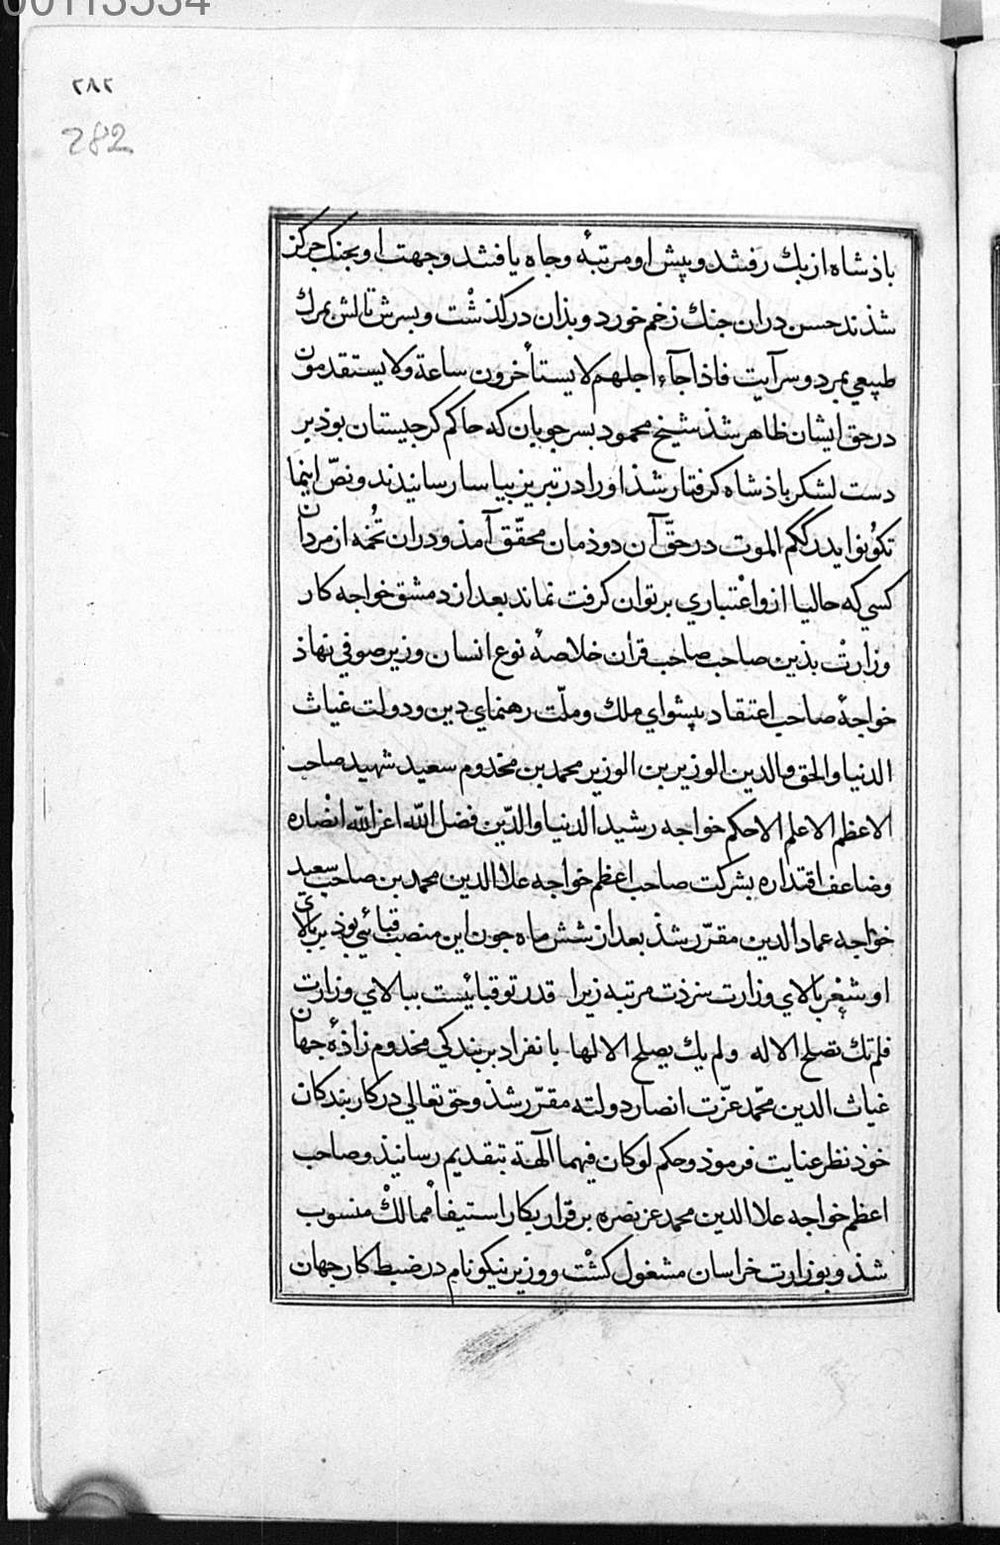 00113534
٢٨٢
282
باذشاه ازبك رفتند و پيش او مرتبۀ و جاه يافتند و جهت او بجنك جركز
شذند حسن دران جنك زخم خورد و بذان دركذشت و بسرش تالش بمرك
طبيعي بمرد و سر آيت فاذا جآء اجلهم لا يستأخرون ساعة ولا يستقدمون
در حق ايشان ظاهر شذ شيخ محمود بسر جوبان كه حاكم كرجيستان بوذ بر
دست لشكر باذشاه كرفتار شذ او را در تبريز بياسا رسانيدند و نصّ اينما
تكونوا يدرككم الموت در حقّ آن دوذمان محقّق آمذ و دران تُخمه از مردان
كسي كه حاليا ازو اعتباري بر توان كرفت نماند بعد از دمشق خواجه كار
وزارت بذين صاحب صاحب قران خلاصۀ نوع انسان وزير صوفي نهاذ
خواجۀ صاحب اعتقاد پيشواي ملك و ملّت رهنماي دين و دولت غياث
الدنيا والحق والدين الوزير بن الوزير محمد بن مخدوم سعيد شهيد صاحب
الاعظم الاعلم الاحكم خواجه رشيد الدنيا والدّين فضل الله اعز الله انصاره
وضاعف اقتداره بشركت صاحب اعظم خواجه علاالدين محمد بن صاحب سعيد
خواجه عماد الدين مقرّر شذ بعد از شش ماه جون اين منصب قبائي بوذ بر بالاي
او شعر بالاي وزارت سزدت مرتبه زيرا قدر تو قبائيست ببالاي وزارت
فلم تك تصلح الا له ولم يك يصلح الا لها بانفراد بر بندكي مخدوم زاذۀ جهان
غياث الدين محمّد عزّت انصار دولته مقرّر شذ و حق تعالي در كار بندكان
خوذ نظر عنايت فرموذ و حكم لو كان فيهما آلهة بتقديم رسانيذ و صاحب
اعظم خواجه علاالدين محمد عز نصره بر قرار بكار استيفا ممالك منسوب
شذ و بوزارت خراسان مشغول كشت و وزير نيكو نام در ضبط كار جهان